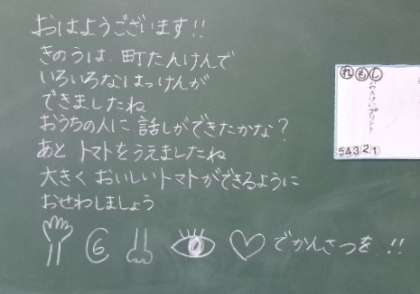 おはようございます!!
きのうは、町たんけんで
いろいろなはっけんが
できましたね
おうちの人に話しができたかな?
あと トマトをうえましたね
大きく おいしいトマトができるように
おせわしましょう
でかんさつを !!
れ も し
5 4 3 2 1